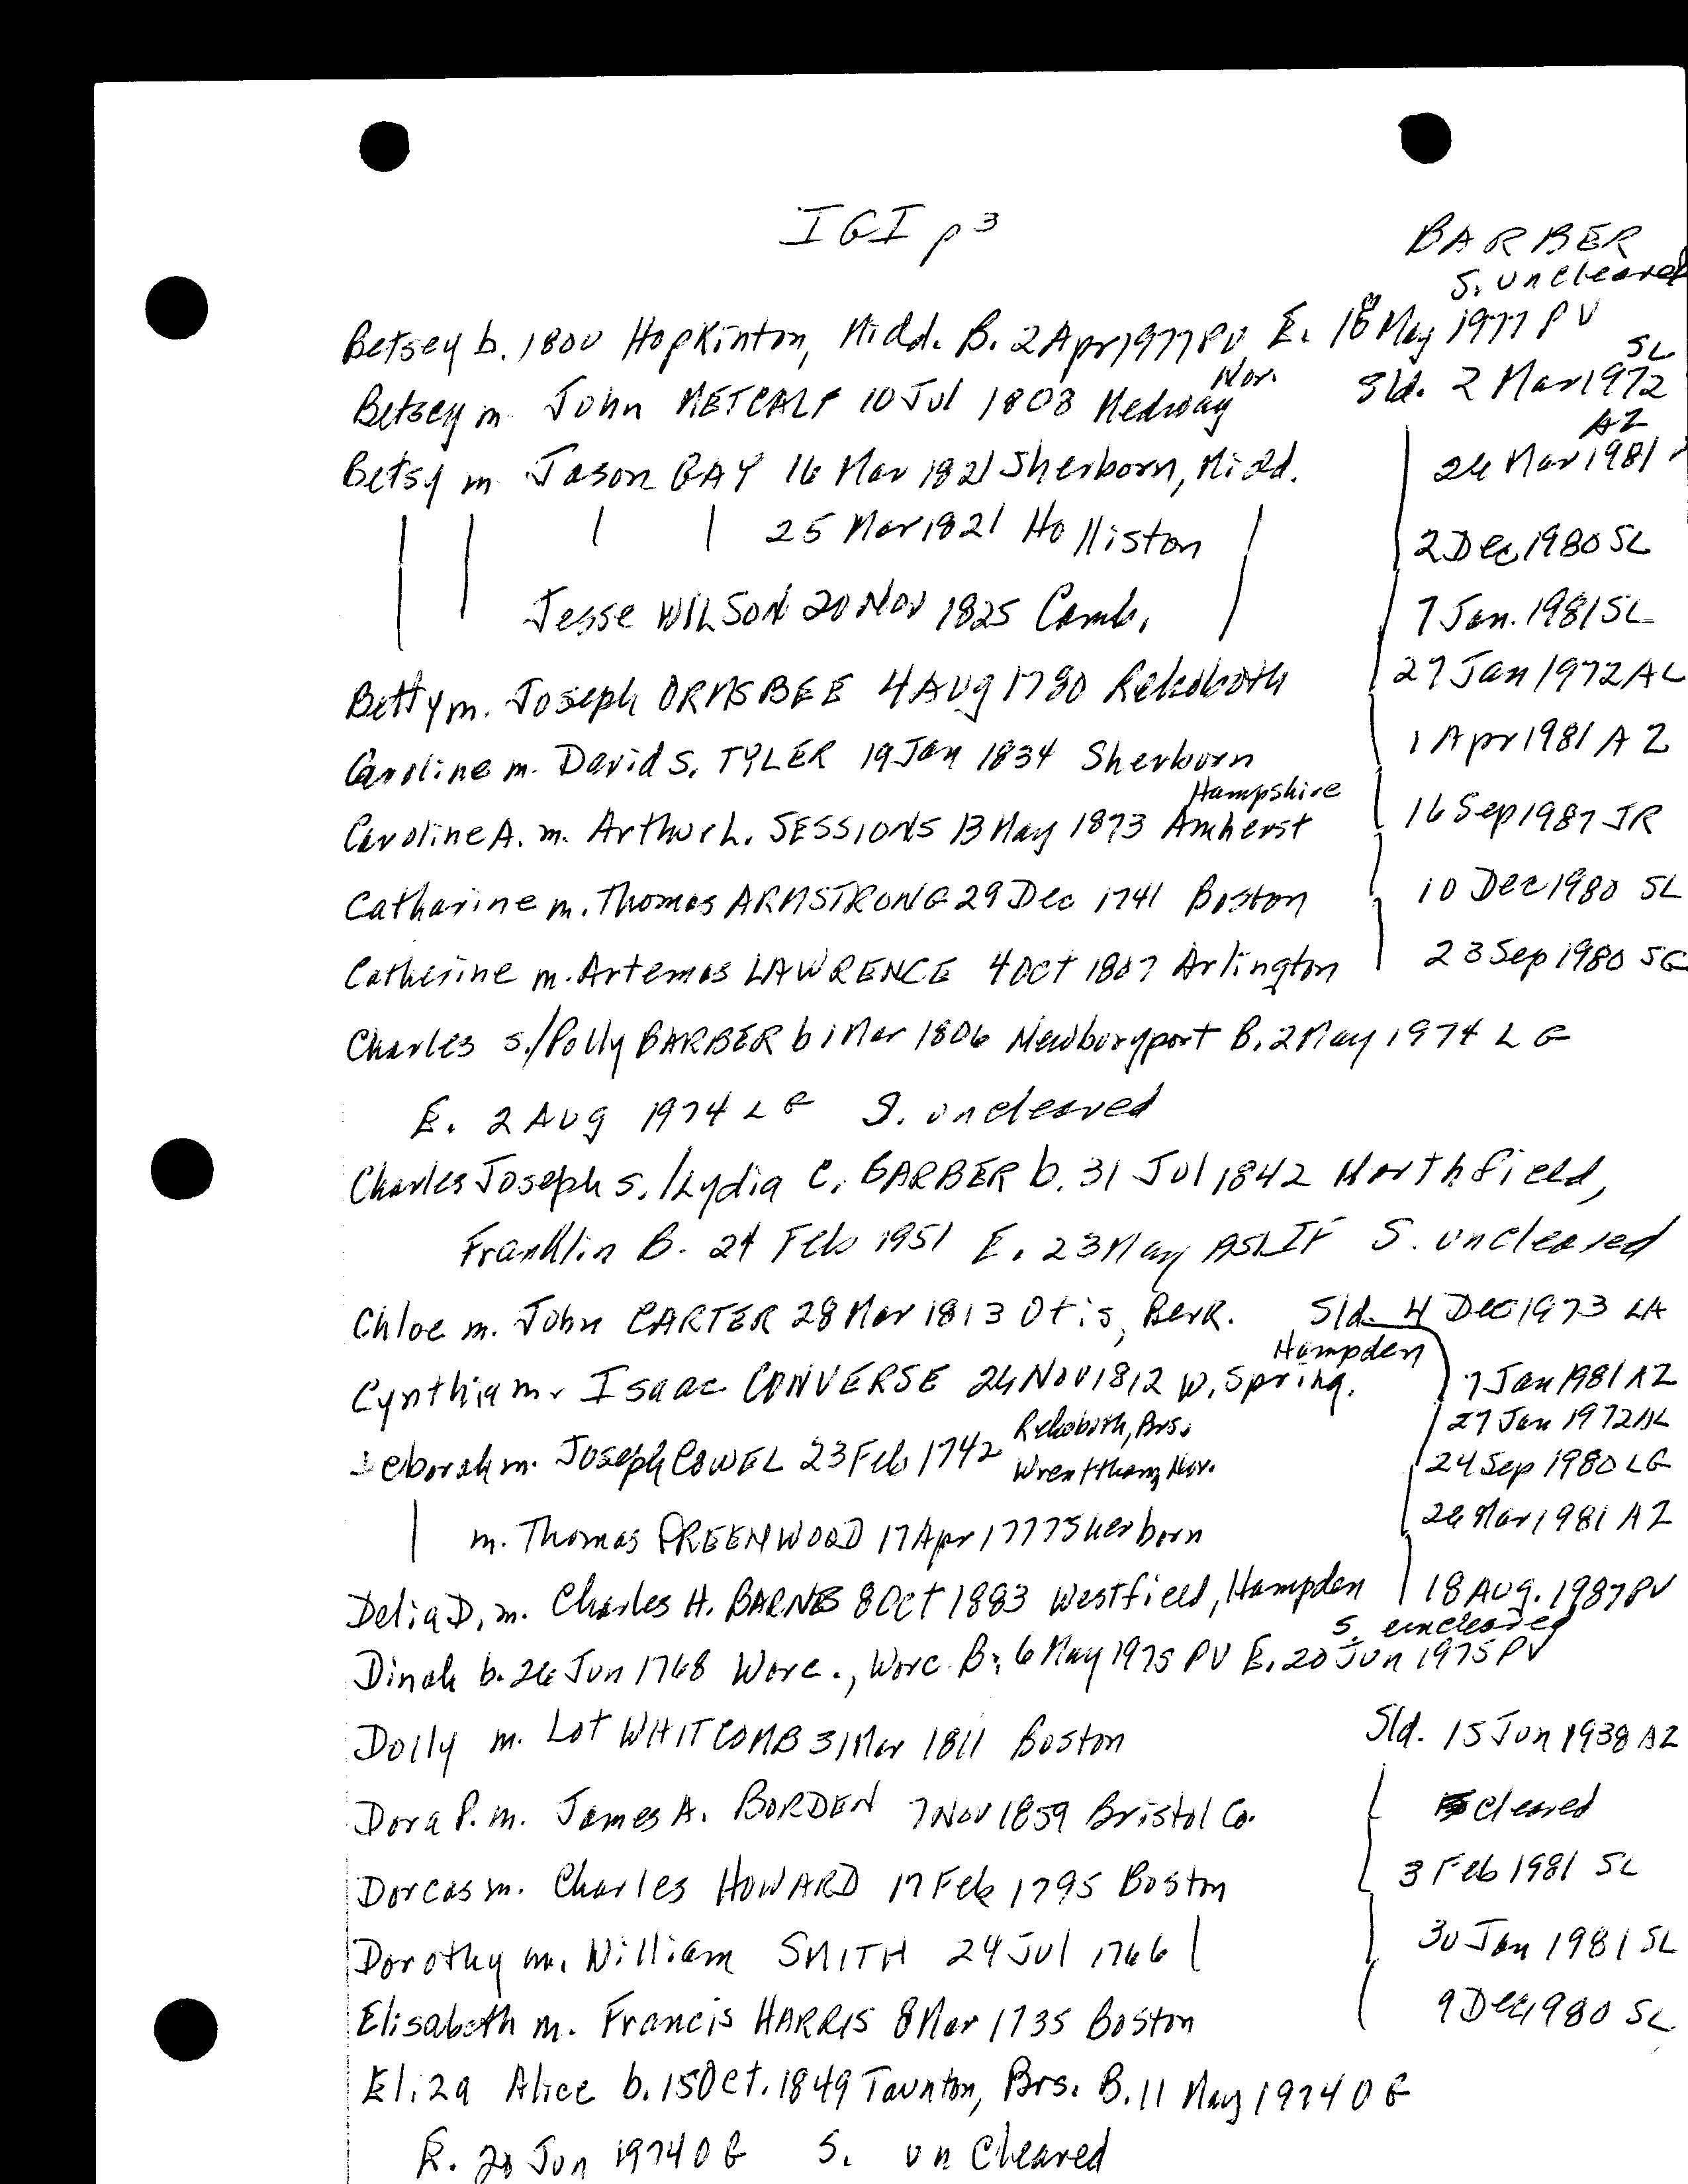 IGI p 3
BARBER
S. uncleared
Betsey b. 1800 Hopkinton, Midd. B. 2 Apr 1977 PV E. 18 May 1977 PV
Betsey m. John METCALF 10 Jul 1808 Medway Nor. Sld. 2 Mar 1972 SL
Betsy m Jason GAY 16 Mar 1821 Sherborn, Midd. 26 Mar 1981 AZ
| | | | 25 Mar 1821 Holliston | 2 Dec 1980 SL
Jesse WILSON 20 Nov 1825 Camb. 7 Jan. 1981 SL
Betty m. Joseph ORMSBEE 4 Aug 1780 Rehoboth 27 Jan 1972 AL
Caroline m. David S. TYLER 19 Jan 1834 Sherborn 1 Apr 1981 AZ
Caroline A. m. Arthur L. SESSIONS 13 May 1873 Amherst Hampshire 16 Sep 1987 JR
Catharine m. Thomas ARMSTRONG 29 Dec 1741 Boston 10 Dec 1980 SL
Catherine m. Artemas LAWRENCE 4 Oct 1807 Arlington 23 Sep 1980 SG
Charles s./Polly BARBER b 1 Mar 1806 Newburyport B. 2 May 1974 LG
E. 2 Aug 1974 LG S. uncleared
Charles Joseph s./Lydia C. BARBER b. 31 Jul 1842 Northfield,
Franklin B. 24 Feb 1951 E. 23 May 1951 IF S. uncleared
Chloe m. John CARTER 28 Mar 1813 Otis, Berk. Sld. 4 Dec 1973 LA
Cynthia m. Isaac CONVERSE 26 Nov 1812 W. Spring. Hampden 7 Jan 1981 AZ
27 Jan 1972 AL
Deborah m. Joseph COWEL 23 Feb 1742 Rehoboth, Brs.
Wrentham, Nor. 24 Sep 1980 LG
| m. Thomas GREENWOOD 17 Apr 1777 Sherborn 26 Mar 1981 AZ
Delia D. m. Charles H. BARNES 8 Oct 1883 Westfield, Hampden 18 Aug. 1987 PV
S. uncleared
Dinah b. 26 Jun 1768 Worc., Worc. B. 6 May 1975 PV E. 20 Jun 1975 PV
Dolly m. Lot WHITCOMB 31 Mar 1811 Boston Sld. 15 Jun 1938 AZ
Dora P. m. James A. BORDEN 7 Nov 1859 Bristol Co. cleared
Dorcas m. Charles HOWARD 17 Feb 1795 Boston 3 Feb 1981 SL
Dorothy m. William SMITH 24 Jul 1766 | 30 Jan 1981 SL
Elisabeth m. Francis HARRIS 8 Mar 1735 Boston 9 Dec 1980 SL
Eliza Alice b. 15 Oct. 1849 Taunton, Brs. B. 11 May 1974 OG
E. 20 Jun 1974 OG S. uncleared